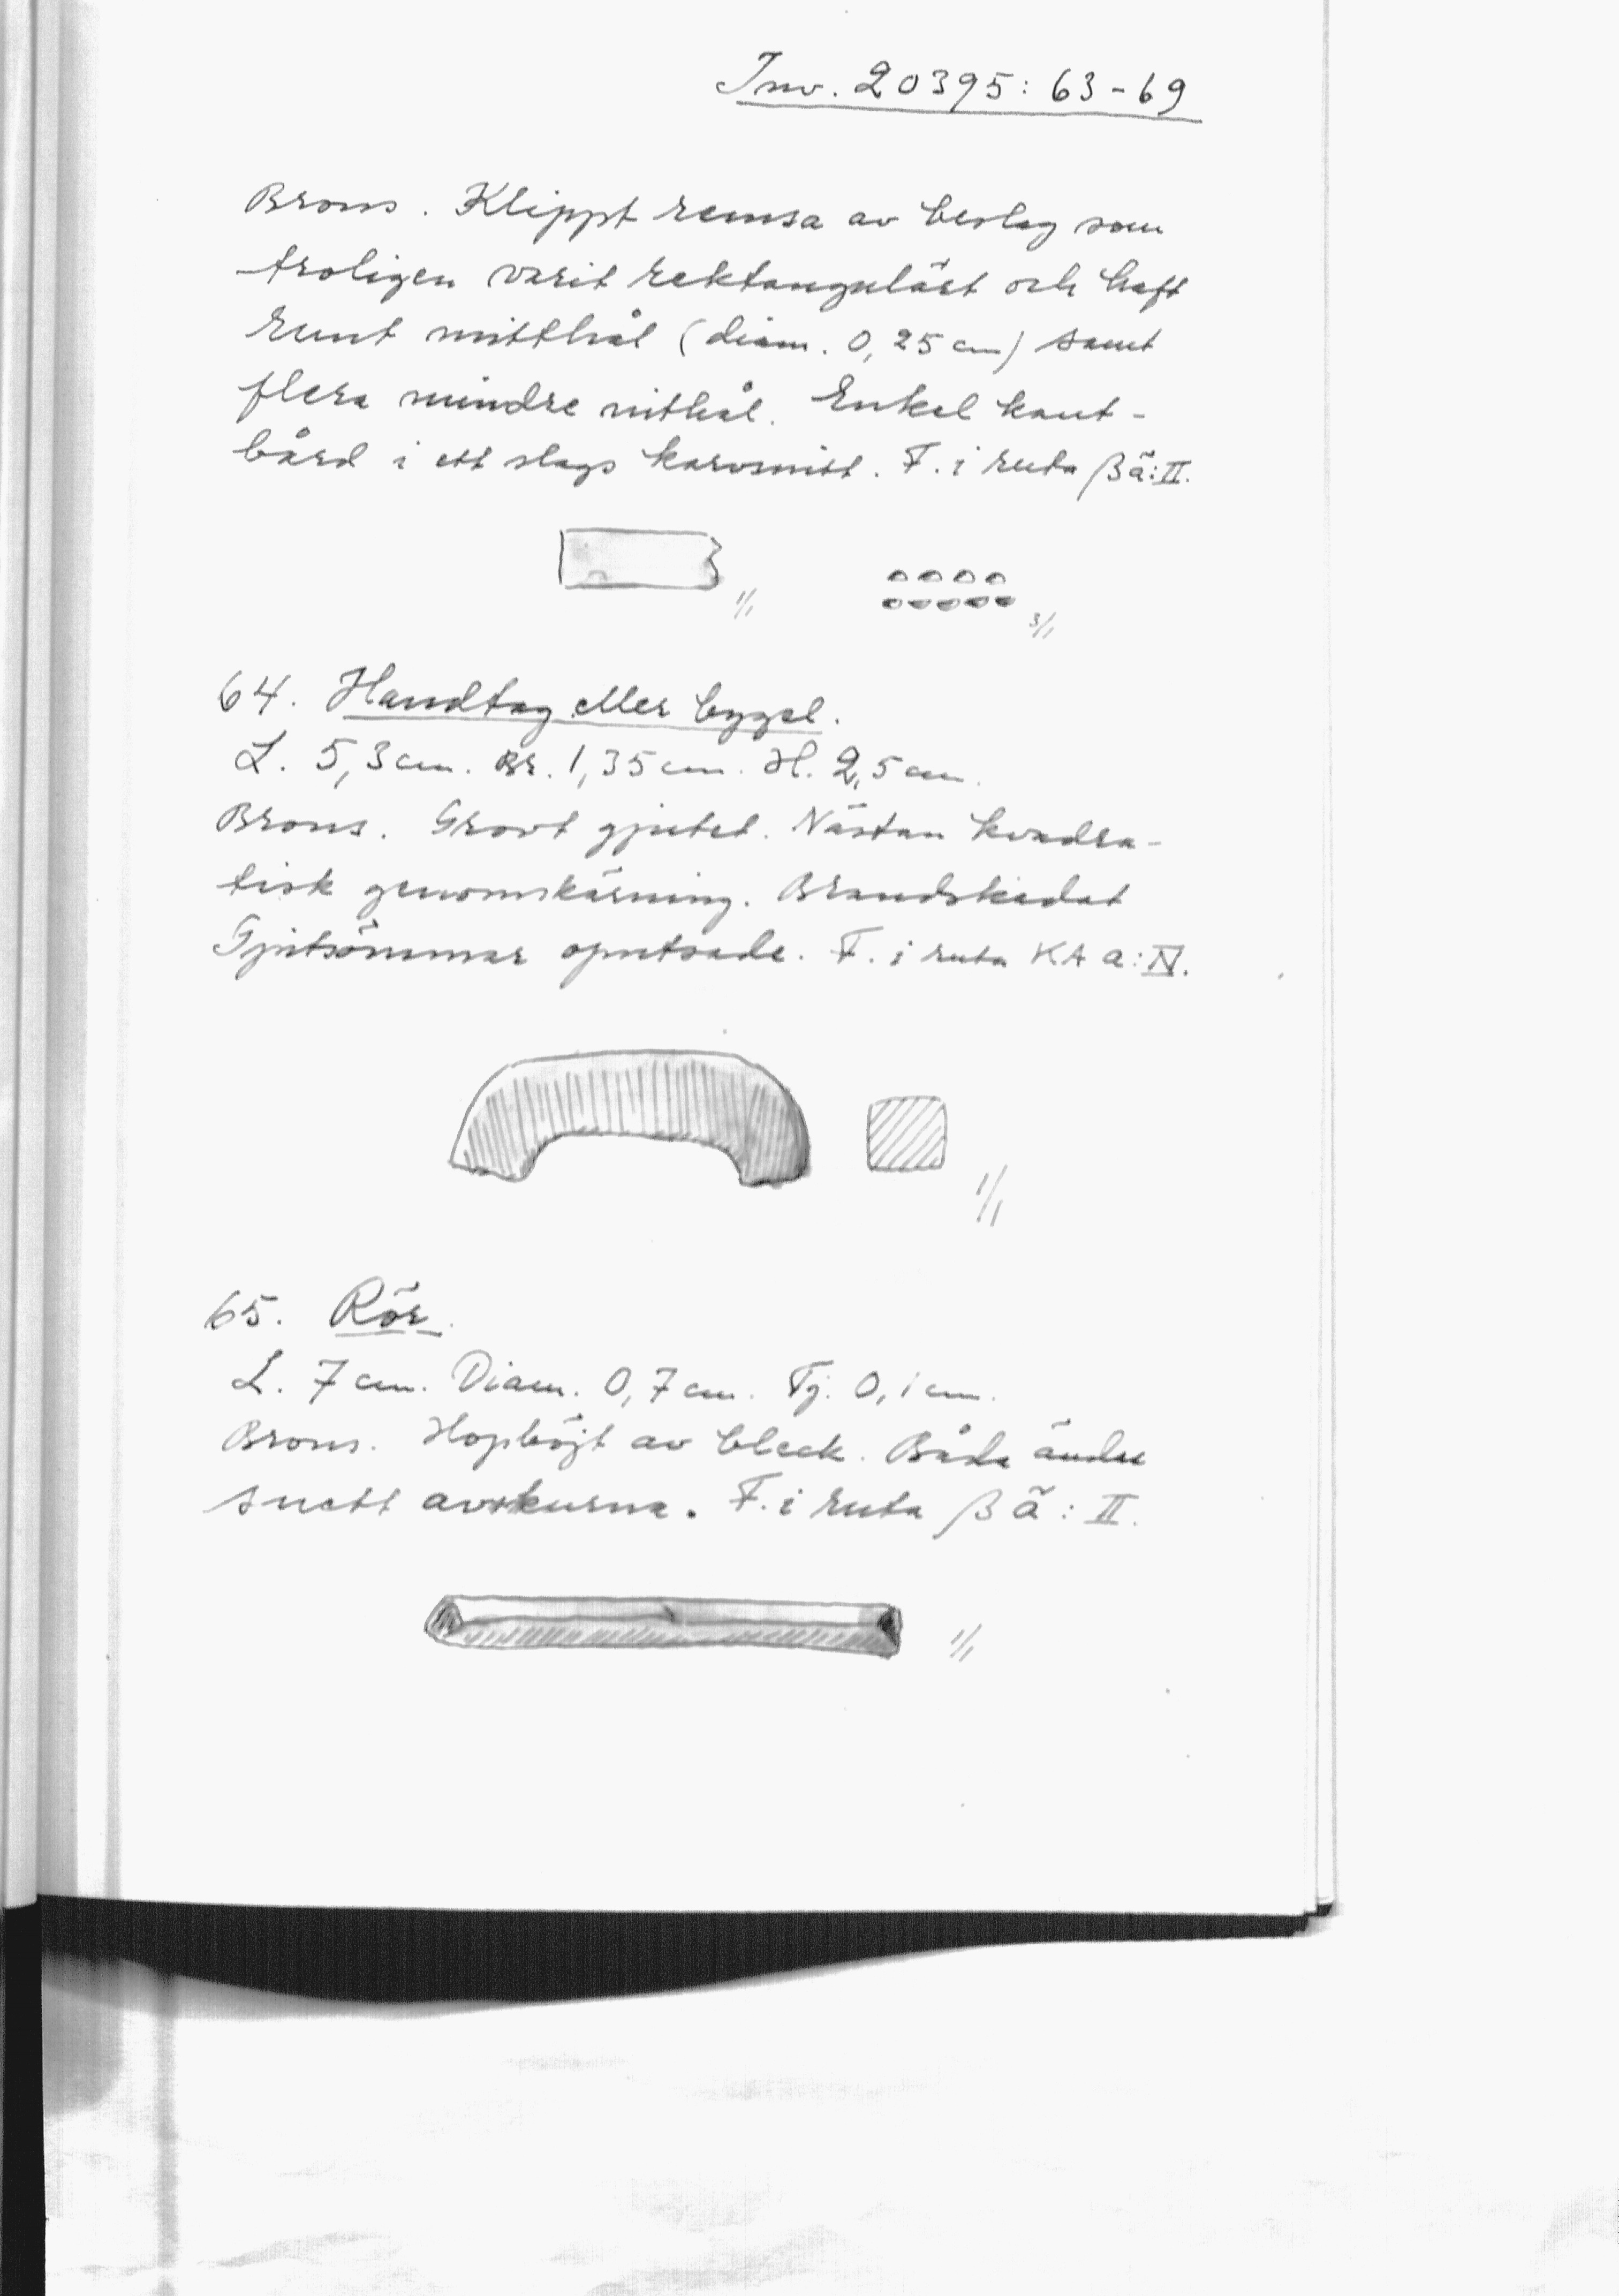 Inv. 20395: 63-69
Brons. Klippt remsa av beslag som
troligen varit rektangulärt och haft
runt mitthål (diam. 0,25 cm) samt
flera mindre nithål. Enkel kant-
bård i ett slags karvsnitt. F. i ruta β ä: II.
1/1
3/1
64. Handtag eller bygel.
L. 5,3 cm. Br. 1,35 cm. H. 2,5 cm.
Brons. Grovt gjutet. Nästan kvadra-
tisk genomskärning. Brandskadat
Gjutsömmar oputsade. F. i ruta KA a: IV.
1/1
65. Rör.
L. 7 cm. Diam. 0,7 cm. Tj. 0,1 cm.
Brons. Hopböjt av bleck. Båda ändar
snett avskurna. F. i ruta β ä: II.
1/1